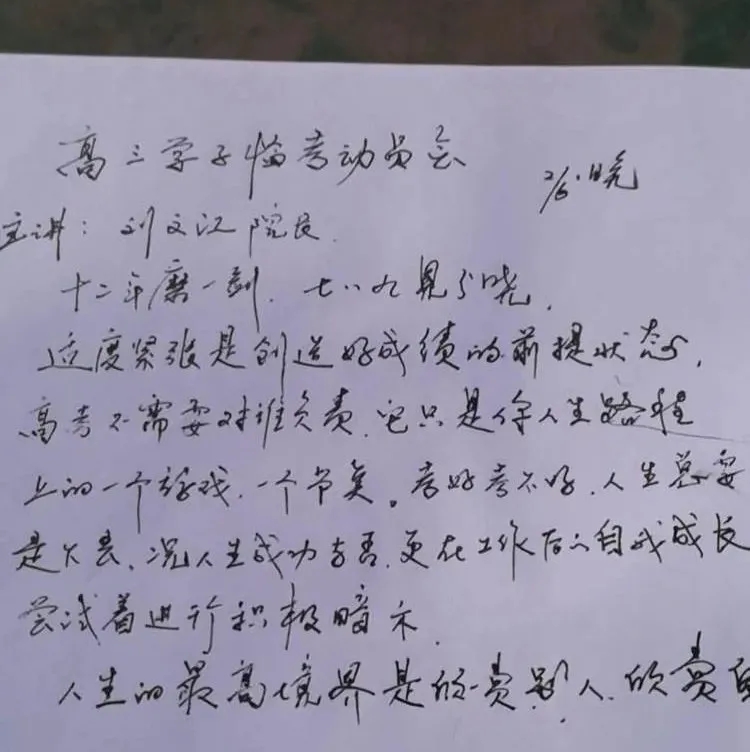 高三学子临考动员会
2/6.晓
主讲：刘文江院长.
十二年磨一剑.七八九见分晓.
适度紧张是创造好成绩的前提状态,
高考不需要对谁负责.它只是你人生路程
上的一个游戏.一个节点。考好考不好.人生总要
走下去.况人生成功与否.更在工作后的自我成长
尝试着进行积极暗示.
人生的最高境界是欣赏别人.欣赏自